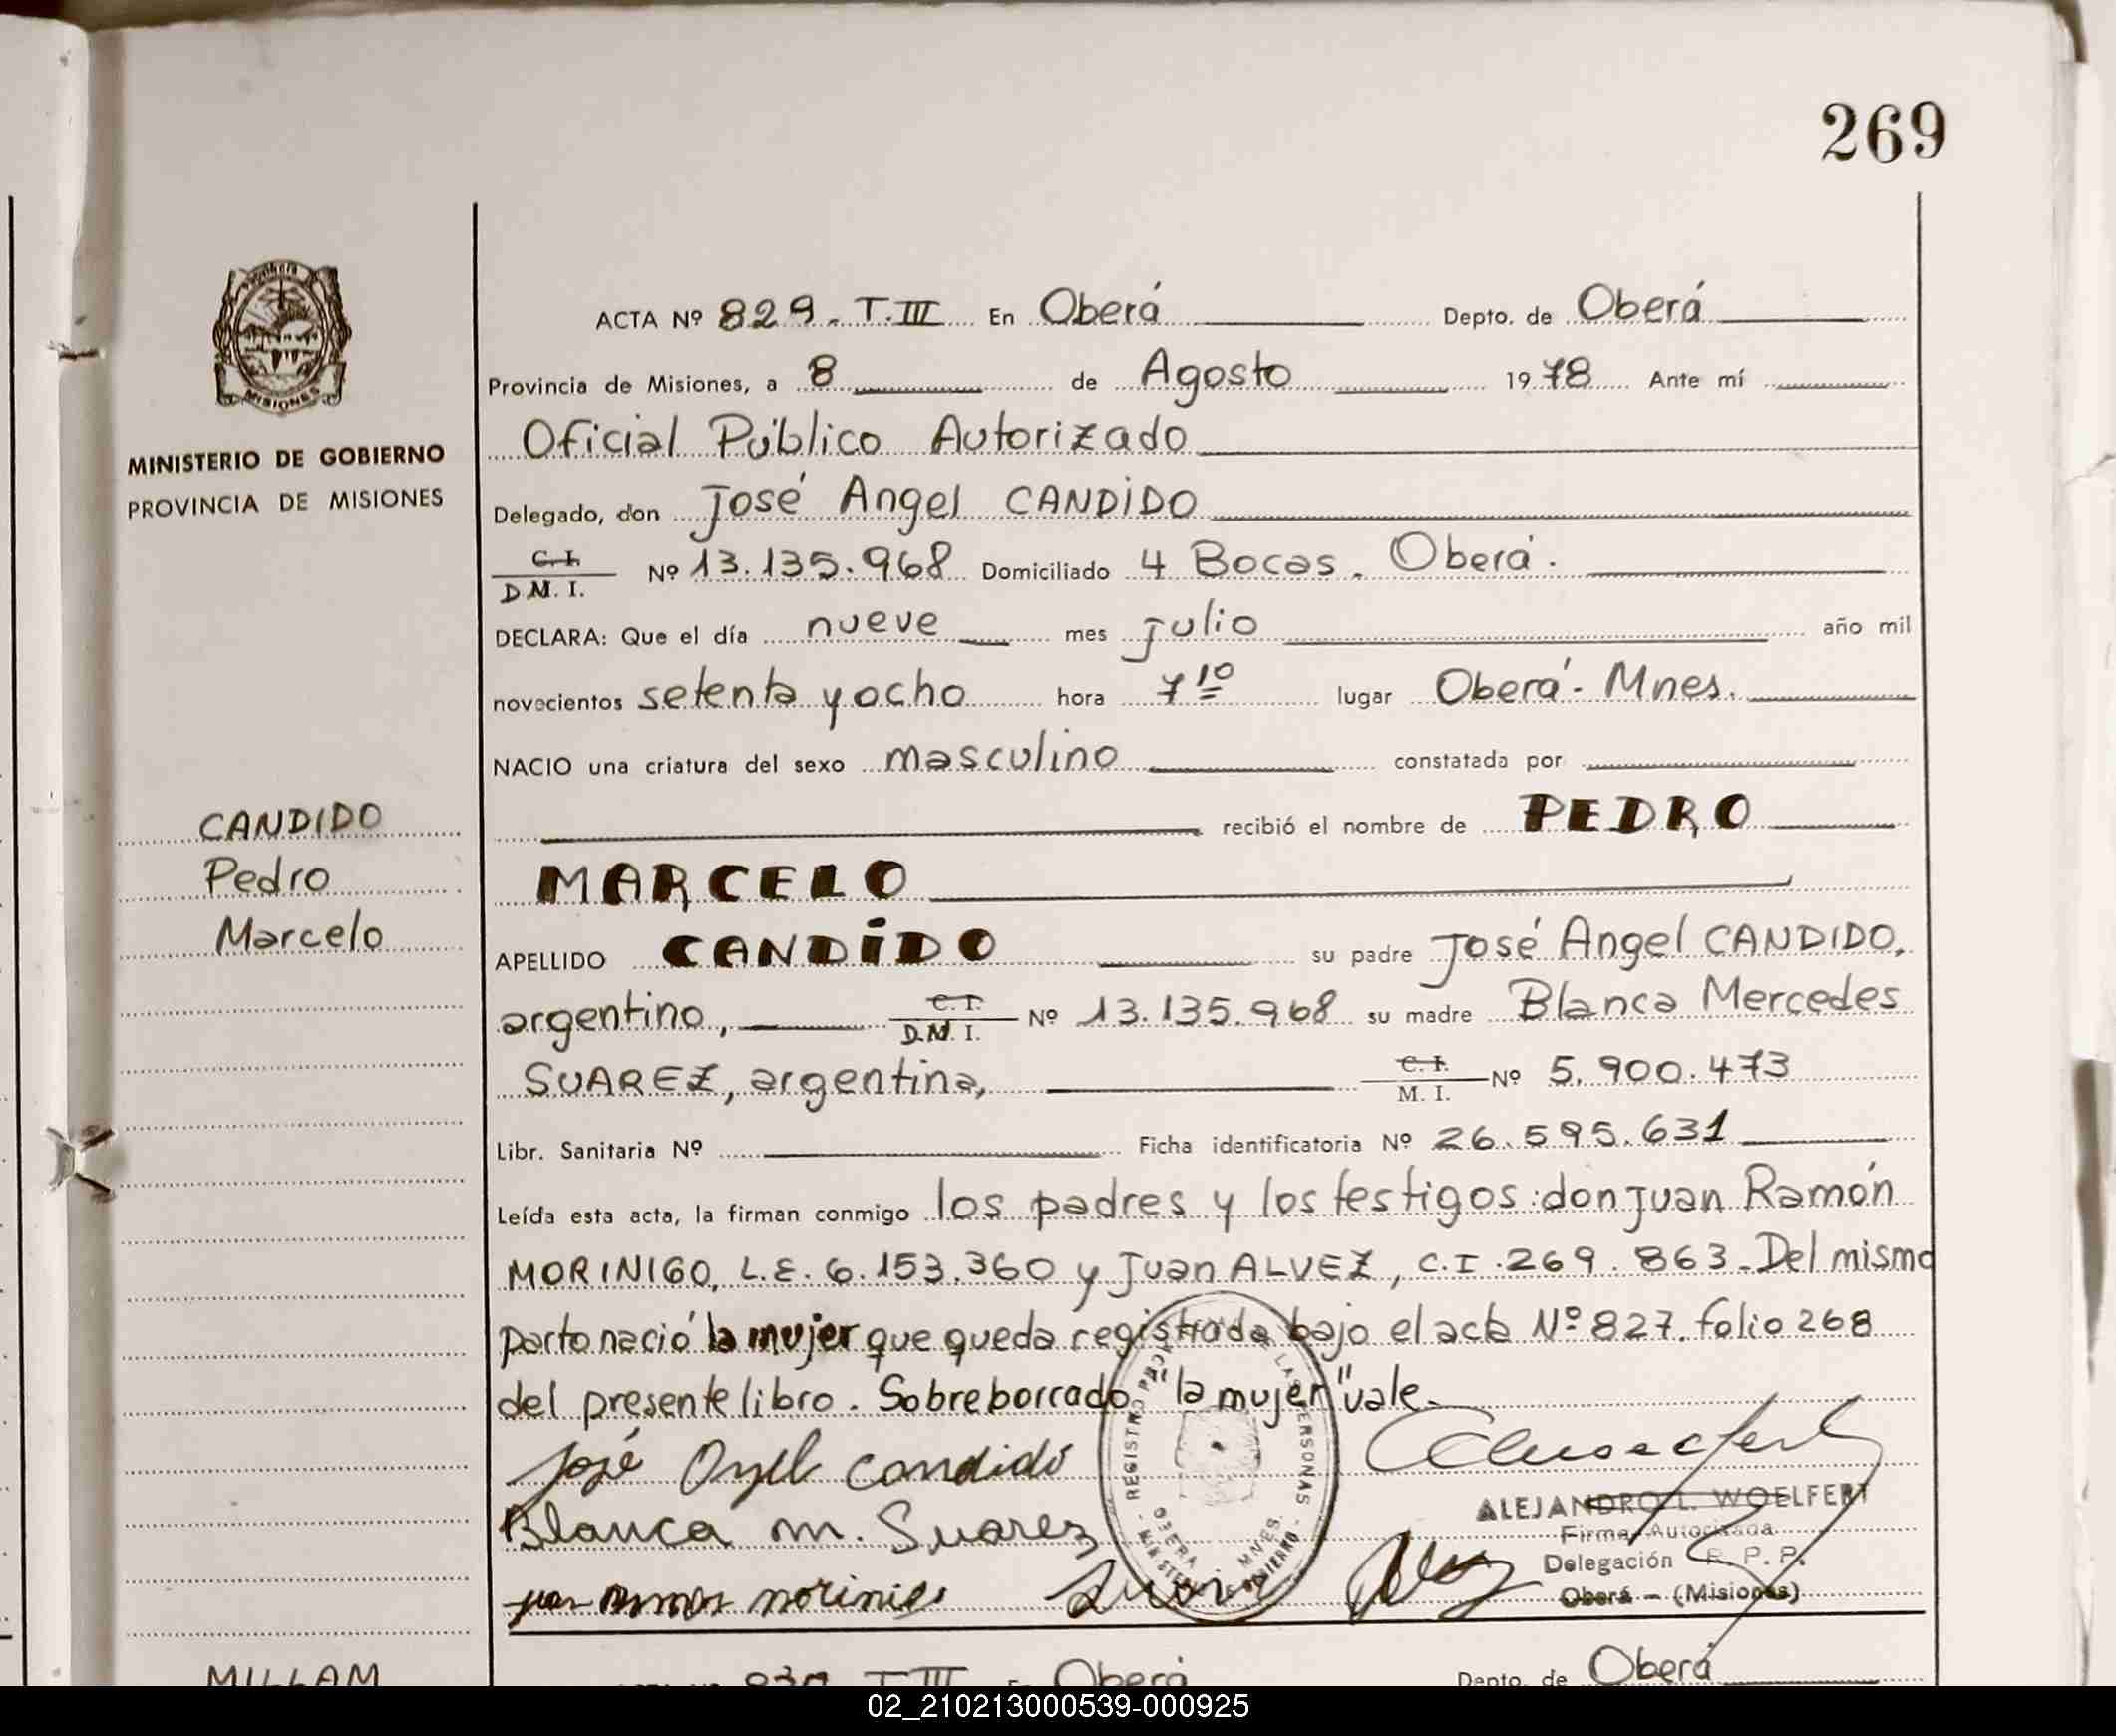 269
MINISTERIO DE GOBIERNO
PROVINCIA DE MISIONES
CANDIDO
Pedro
Marcelo
MISIONES
ACTA Nº 829. T. III En Oberá Depto. de Oberá
Provincia de Misiones, a 8 de Agosto 1978 Ante mí
Oficial Público Autorizado
Delegado, don José Angel CANDIDO
C. I. / D M. I. Nº 13.135.968 Domiciliado 4 Bocas. Oberá.
DECLARA: Que el día nueve mes julio año mil
novecientos setenta y ocho hora 7 10 lugar Oberá- Mnes.
NACIO una criatura del sexo masculino constatada por
recibió el nombre de PEDRO
MARCELO
APELLIDO CANDIDO su padre José Angel CANDIDO,
argentino, C. I. / D.M. I. Nº 13.135.968 su madre Blanca Mercedes
SUAREZ, argentina, C. I. / M. I. Nº 5.900.473
Libr. Sanitaria Nº Ficha identificatoria Nº 26.595.631
Leída esta acta, la firman conmigo los padres y los testigos: don Juan Ramón
MORINIGO, L.E. 6.153.360 y Juan ALVEZ, C.I. 269.863. Del mismo
parto nació la mujer que queda registrada bajo el acta Nº 827. folio 268
del presente libro. Sobreborrado "la mujer" vale.
José Angel Candido
Blanca M. Suarez
Juan Ramon Morinigo Juan Alvez
REGISTRO LAS PERSONAS
OBERA MNES.
ALEJANDRO L. WOELFERT
Firma Autorizada
Delegación R. P. P.
Oberá - (Misiones)
MILLAM
830 T III En Oberá Depto. de Oberá
02_210213000539-000925